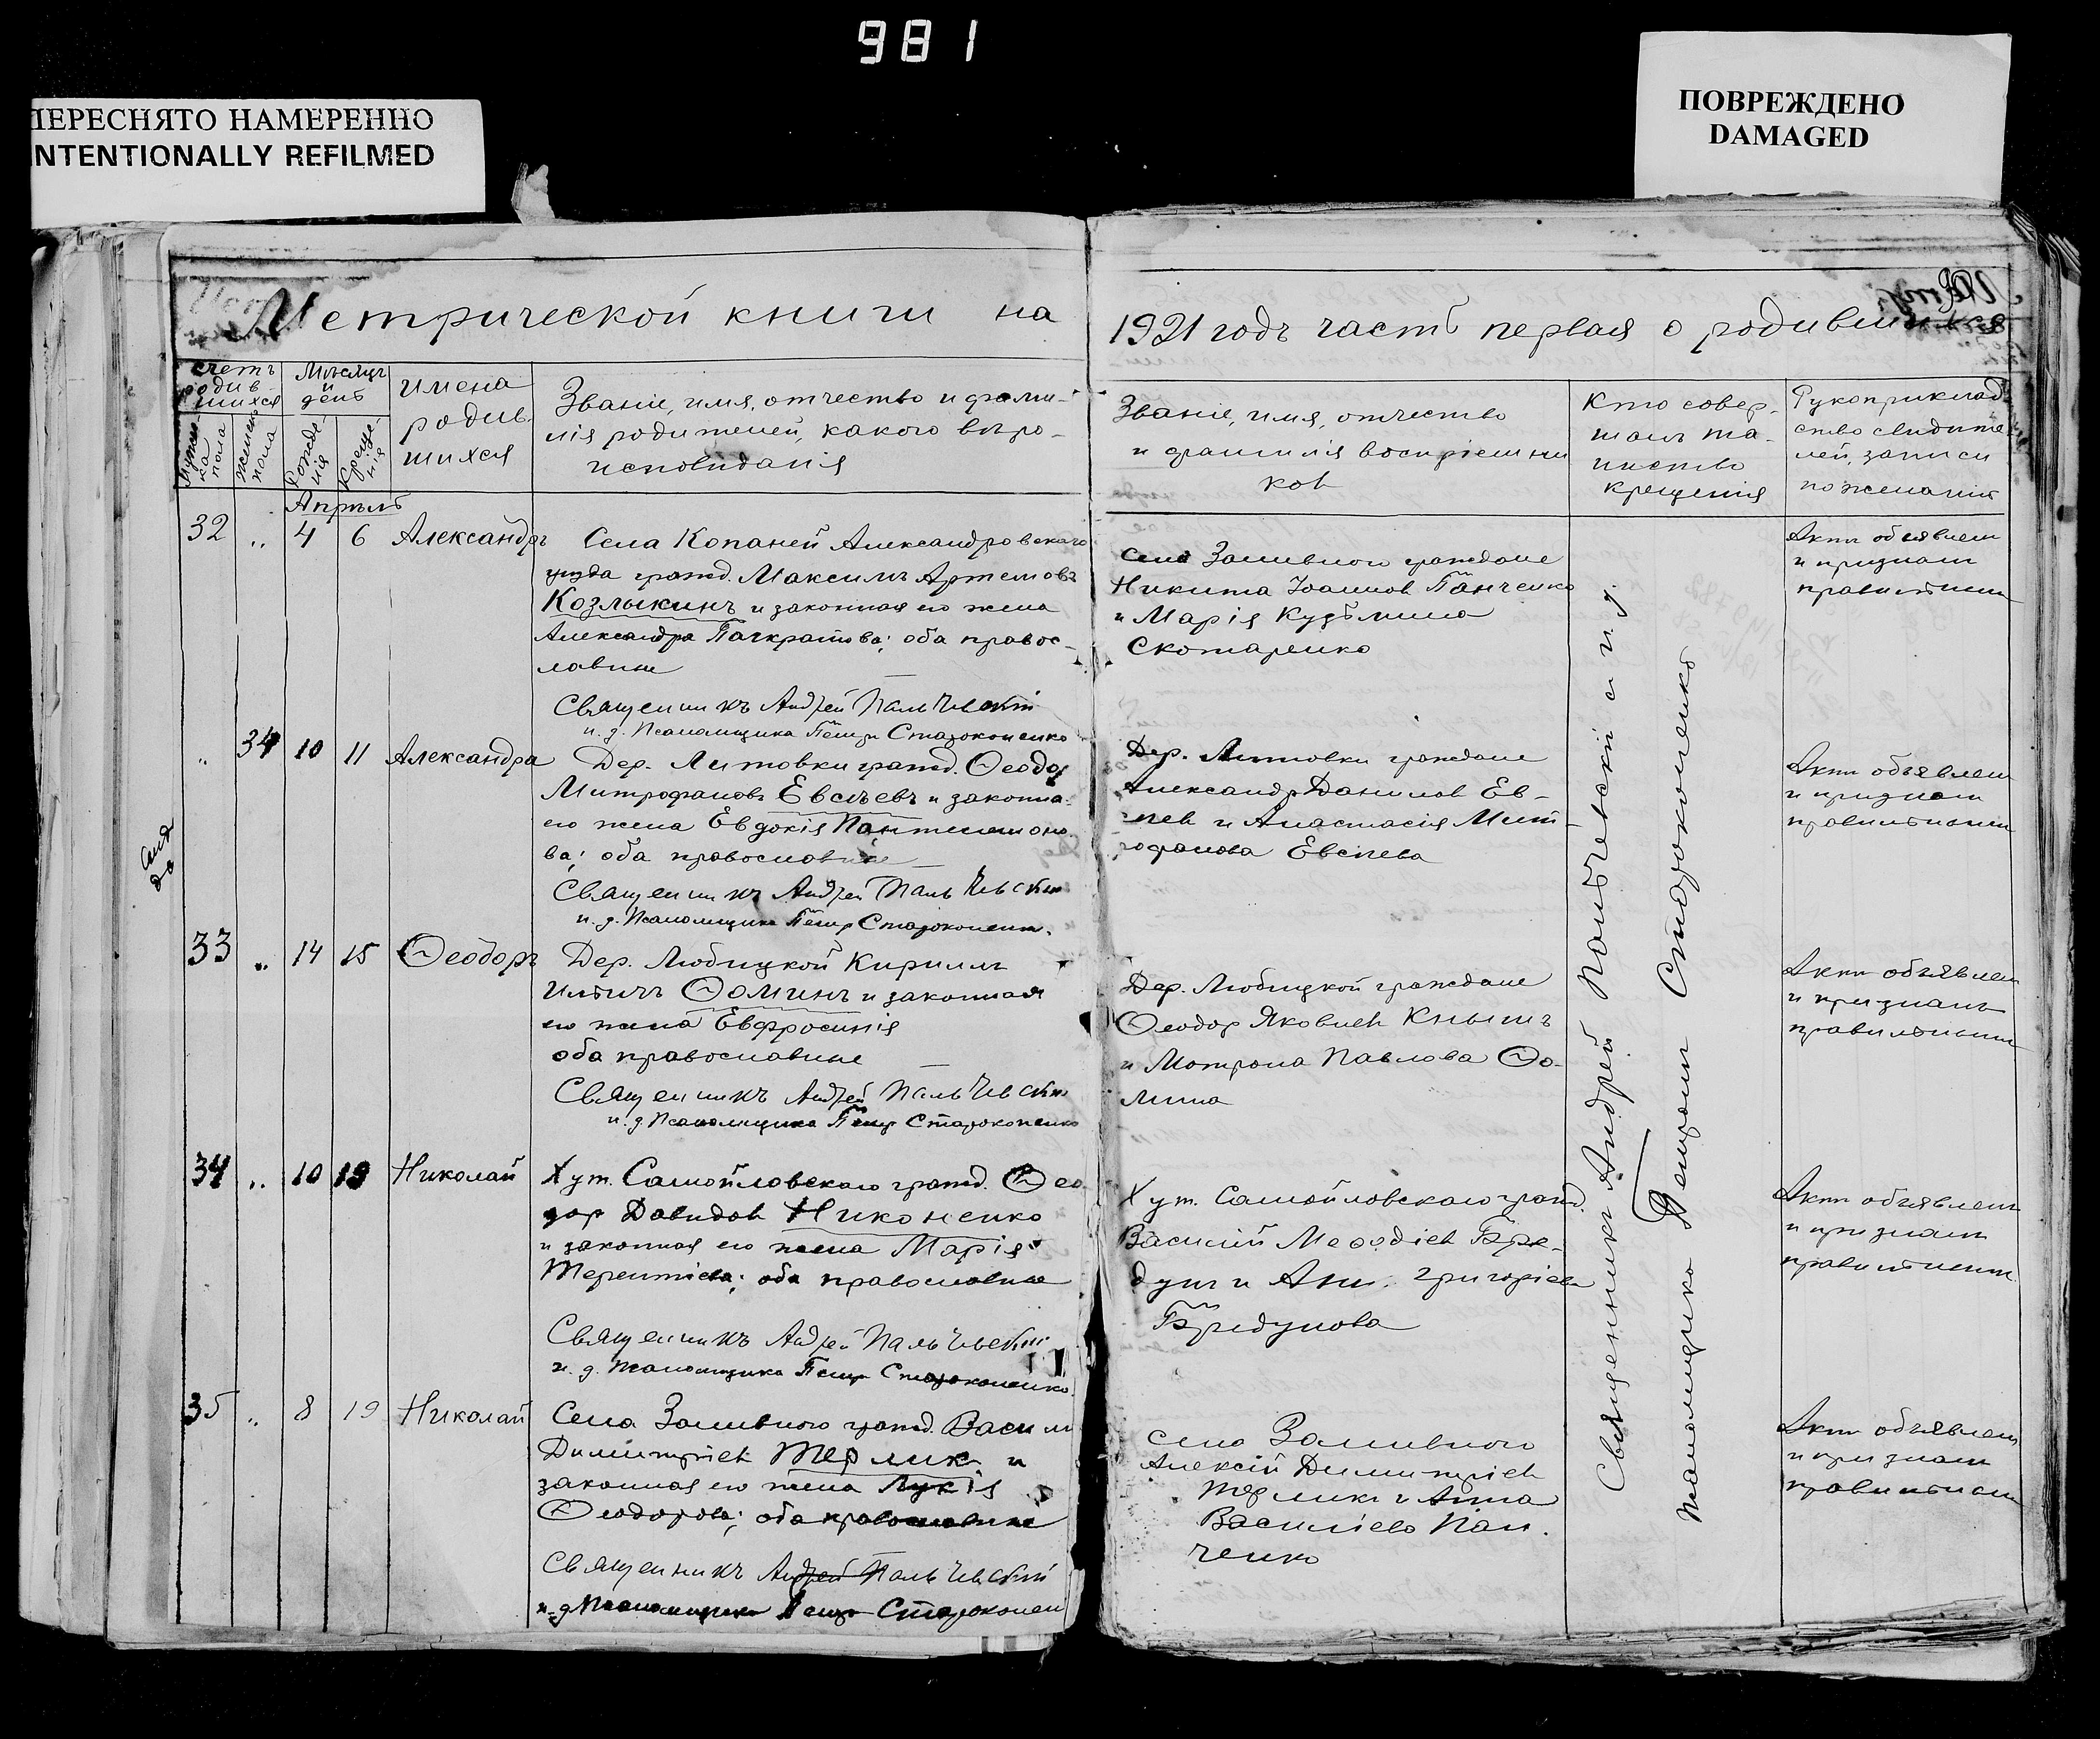 981
ПЕРЕСНЯТО НАМЕРЕННО
INTENTIONALLY REFILMED
ПОВРЕЖДЕНО
DAMAGED
Метрической книги на
1921 годъ часть первая о родившихся
Счетъ родив-
шихся
Мѣсяцъ
и
день
имена
родив-
шихся
Званіе, имя, отчество и фами-
лія родителей, какого вѣро-
исповѣданія
Мужес-
ка
пола
женска
пола
Рожде-
нія
Креще-
нія
Званіе, имя, отчество
и фамилія воспріемни
ков
Кто совер-
шалъ та-
инство
крещенія
Рукоприклад
ство свидѣте
лей записи
по желанію
Апрѣль
32 „ 4 6 Александръ
Села Копаней Александровскаго
уѣзда гражд. Максимъ Артемовъ
Козлыкинъ и законная его жена
Александра Панкратова; оба правос-
лавные
Священникъ Андрей Пальчевскій
и. д. Псаломщика Петръ Староконенко
Села Заливного граждане
Никита Іоаннов Панченко
и Марія Кузьмина
Скотаренко
Актъ объявлен
и признан
правильным
„ 34 10 11 Александра
Дер. Литовки гражд. Ѳеодор
Митрофановъ Евсѣевъ и законна
его жена Евдокія Пантелеимоно
ва; оба православные
Священникъ Андрей Пальчевскій
и. д. Псаломщика Петр Староконенк.
Дер. Литовки граждане
Александр Данилов Ев-
сѣев и Анастасія Мит-
рофанова Евсѣева
Актъ объявлен
и признан
правильным
33 „ 14 15 Ѳеодоръ
Дер. Любицкой Кириллъ
Ильичъ Ѳоминъ и законная
его жена Евфросинія
оба православные
Священникъ Андрей Пальчевскій
и. д. Псаломщика Петр Староконенко
Дер. Любицкой граждане
Ѳеодор Яковлев Кнышъ
и Матрона Павлова Ѳо-
мина
Актъ объявлен
и признанъ
правильным
34 „ 10 19 Николай
Хут. Самойловскаго гражд. Ѳео
дор Давидов Никоненко
и законная его жена Марія
Терентіева; оба православные
Священникъ Андрей Пальчевскій
и. д. Псаломщика Петр Староконенко
Хут. Самойловскаго гражд.
Василій Меѳодіев Бре-
дун и Анн. Григоріева
Бредунова
Актъ объявлен
и признан
правильным
35 „ 8 19 Николай
Села Заливного гражд. Васили
Димитріев Термик и
законная его жена Лукія
Ѳеодорова; оба православные
Священникъ Андрей Пальчевскій
и. д. Псаломщика Петр Староконен
село Заливного
Алексій Димитріев
Термик и Анна
Василіева Пан-
ченко
Актъ объявлен
и признан
правильным
Священникъ Андрей Пальчевскій с и. д.
псаломщика Петромъ Староконенко